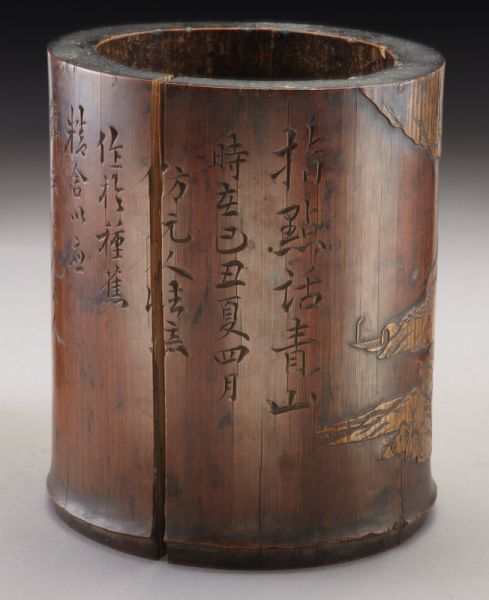 指點話青山
時在己丑夏四月
仿元人法意
作於種蕉
精舍以應